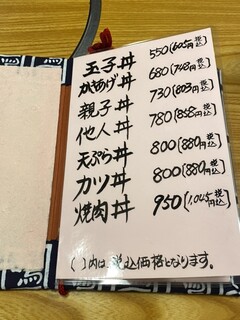 玉子丼 550(605円税込)
かきあげ丼 680(748円税込)
親子丼 730(803円税込)
他人丼 780(858円税込)
天ぷら丼 800(880円税込)
カツ丼 800(880円税込)
焼肉丼 950(1,045円税込)
( )内は税込価格となります。